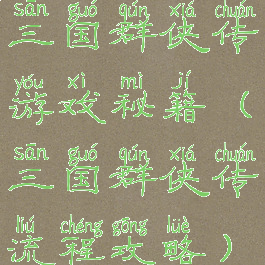 sān guó qún xiá chuán
三国群侠传
yóu xì mì jí
游戏秘籍（
sān guó qún xiá chuán
三国群侠传
liú chéng gōng lüè
流程攻略）